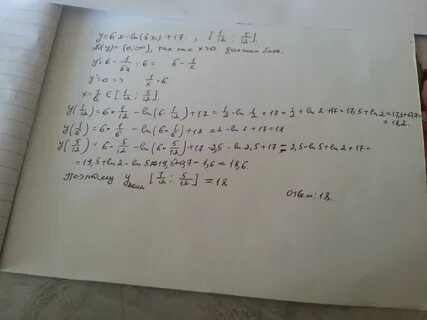 y=6x-ln(6x)+17 ; [1/12 ; 5/12]
D(y)=(0;∞), так как x>0 должна быть.
y'=6-1/6x·6=6-1/x
y'=0 => 1/x=6
x=1/6 ∈ [1/12 ; 5/12].
y(1/12)=6·1/12-ln(6·1/12)+17=1/2-ln 1/2+17=1/2+ln 2+17=17,5+ln2=17,5+0,7=
=18,2.
y(1/6)=6·1/6-ln(6·1/6)+17=1-ln 1+17=18
y(5/12)=6·5/12-ln(6·5/12)+17=2,5-ln 2,5+17=2,5-ln5+ln2+17=
=19,5+ln2-ln5=19,5+0,7-1,6=18,6.
Поэтому y наим [1/12 ; 5/12]=18.
Ответ:18.